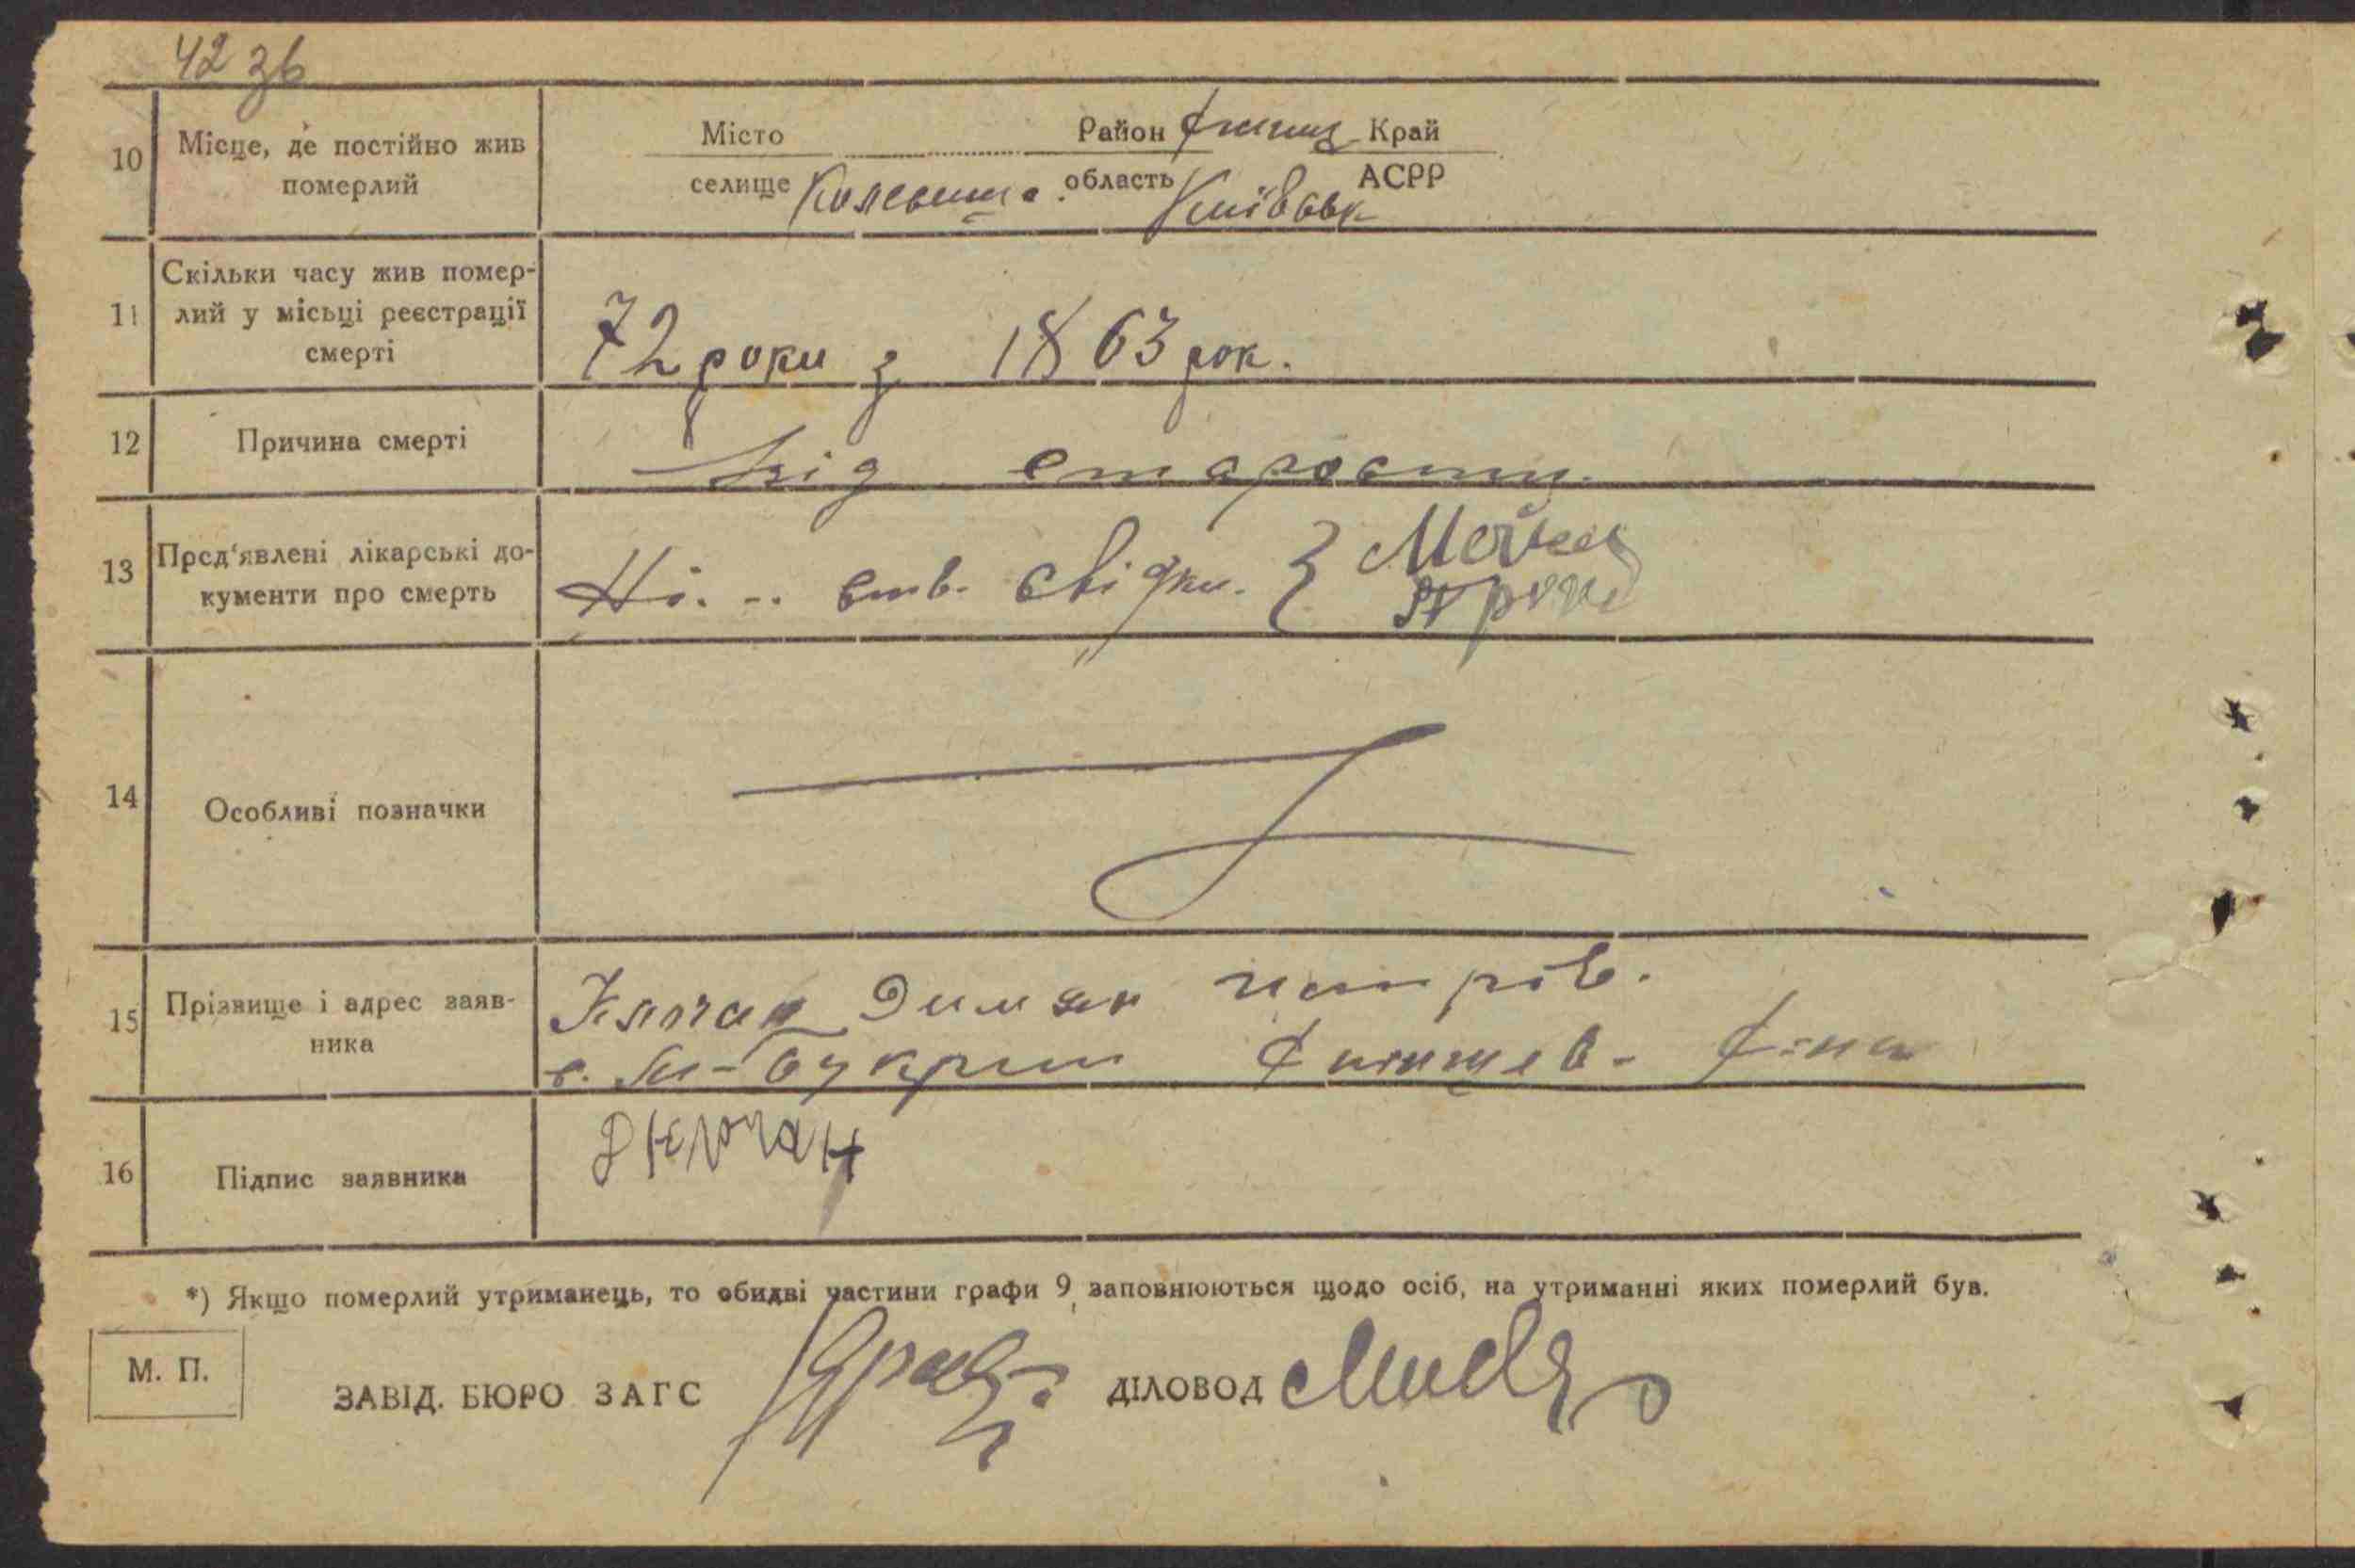 42 зв
10 Місце, де постійно жив померлий
Місто Район Край
селище область Київськ АСРР
11 Скільки часу жив помер-
лий у місьці реєстрації
смерті
72 роки з 1863 рок.
12 Причина смерті
від старости.
13 Пред'явлені лікарські до-
кументи про смерть
Ні. ств. свідки.
14 Особливі позначки
15 Прізвище і адрес заяв-
ника
Клочан
с. Букрин
16 Підпис заявника
Клочан
*) Якщо померлий утриманець, то обидві частини графи 9 заповнюються щодо осіб, на утриманні яких померлий був.
М. П.
ЗАВІД. БЮРО ЗАГС ДІЛОВОД